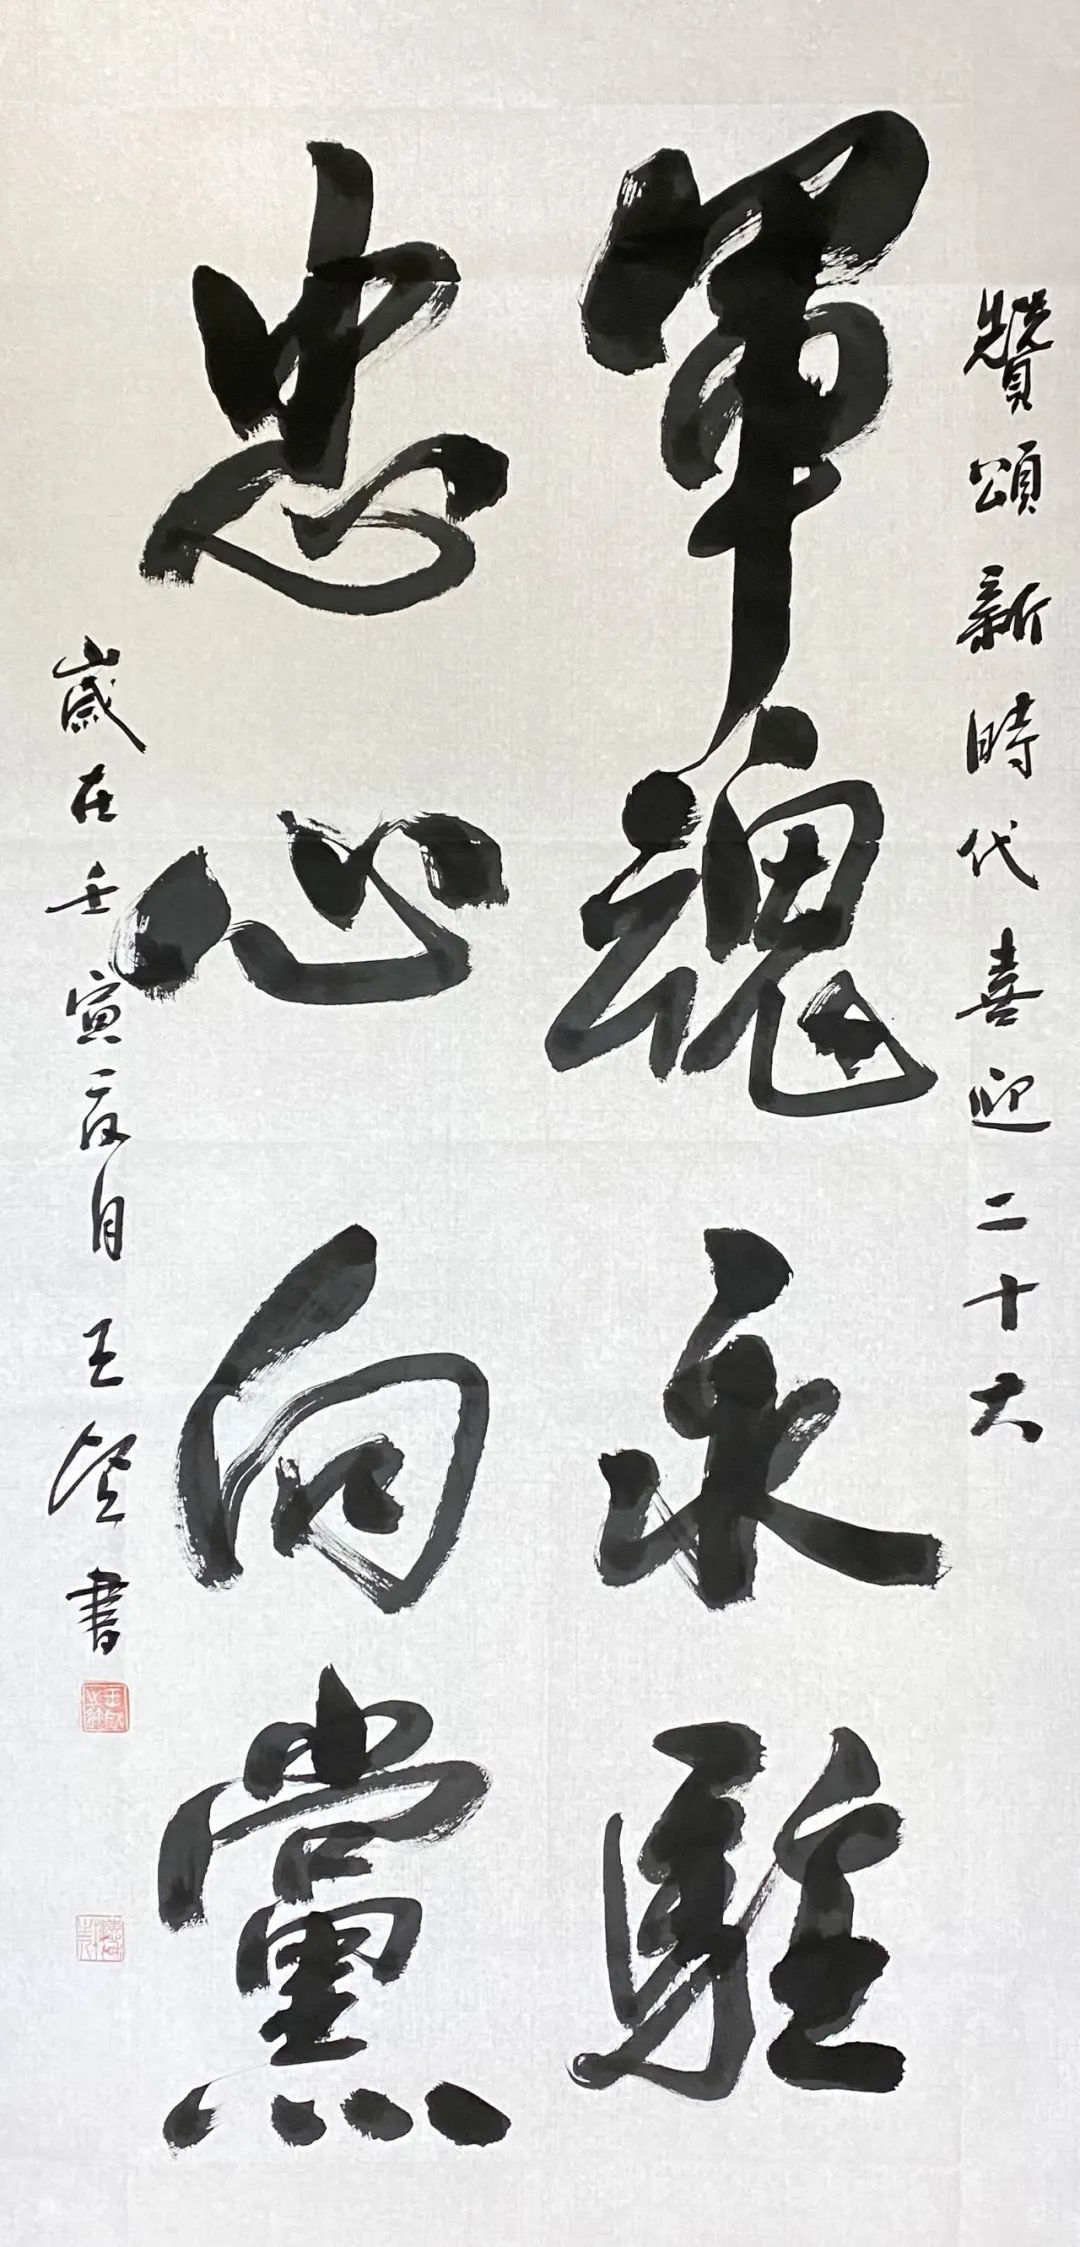 讚頌新時代喜迎二十大
軍魂永駐
忠心向黨
歲在壬寅二月王登書